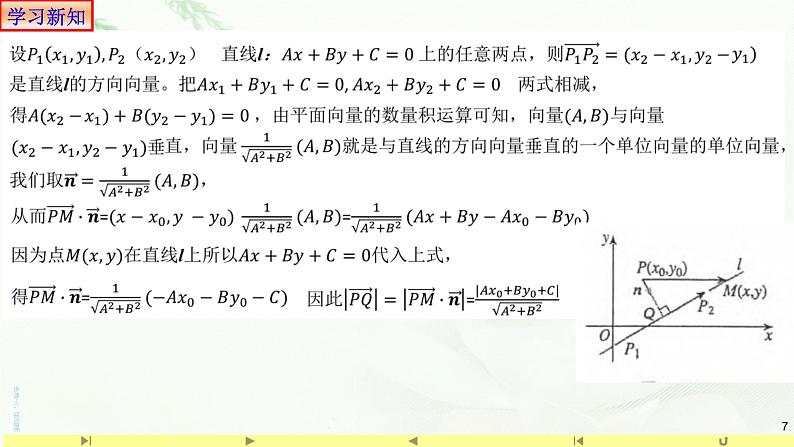 学习新知
设P₁(x₁,y₁),P₂（x₂,y₂） 直线l：Ax+By+C=0 上的任意两点，则\overrightarrow{P₁P₂}=(x₂−x₁,y₂−y₁)
是直线l的方向向量。把Ax₁+By₁+C=0,Ax₂+By₂+C=0 两式相减，
得A(x₂−x₁)+B(y₂−y₁)=0，由平面向量的数量积运算可知，向量(A,B)与向量
(x₂−x₁,y₂−y₁)垂直，向量\frac{1}{\sqrt{A²+B²}}(A,B)就是与直线的方向向量垂直的一个单位向量的单位向量，
我们取\vec{n}=\frac{1}{\sqrt{A²+B²}}(A,B)，
从而\overrightarrow{PM}·\vec{n}=(x−x₀,y −y₀) \frac{1}{\sqrt{A²+B²}}(A,B)=\frac{1}{\sqrt{A²+B²}}(Ax+By−Ax₀−By₀)
因为点M(x,y)在直线l上所以Ax+By+C=0代入上式，
得\overrightarrow{PM}·\vec{n}=\frac{1}{\sqrt{A²+B²}}(−Ax₀−By₀−C) 因此|\overrightarrow{PQ}|=|\overrightarrow{PM}·\vec{n}|=\frac{|Ax₀+By₀+C|}{\sqrt{A²+B²}}
y
P(x₀,y₀)
l
n
M(x,y)
Q
P₂
O
x
P₁
7